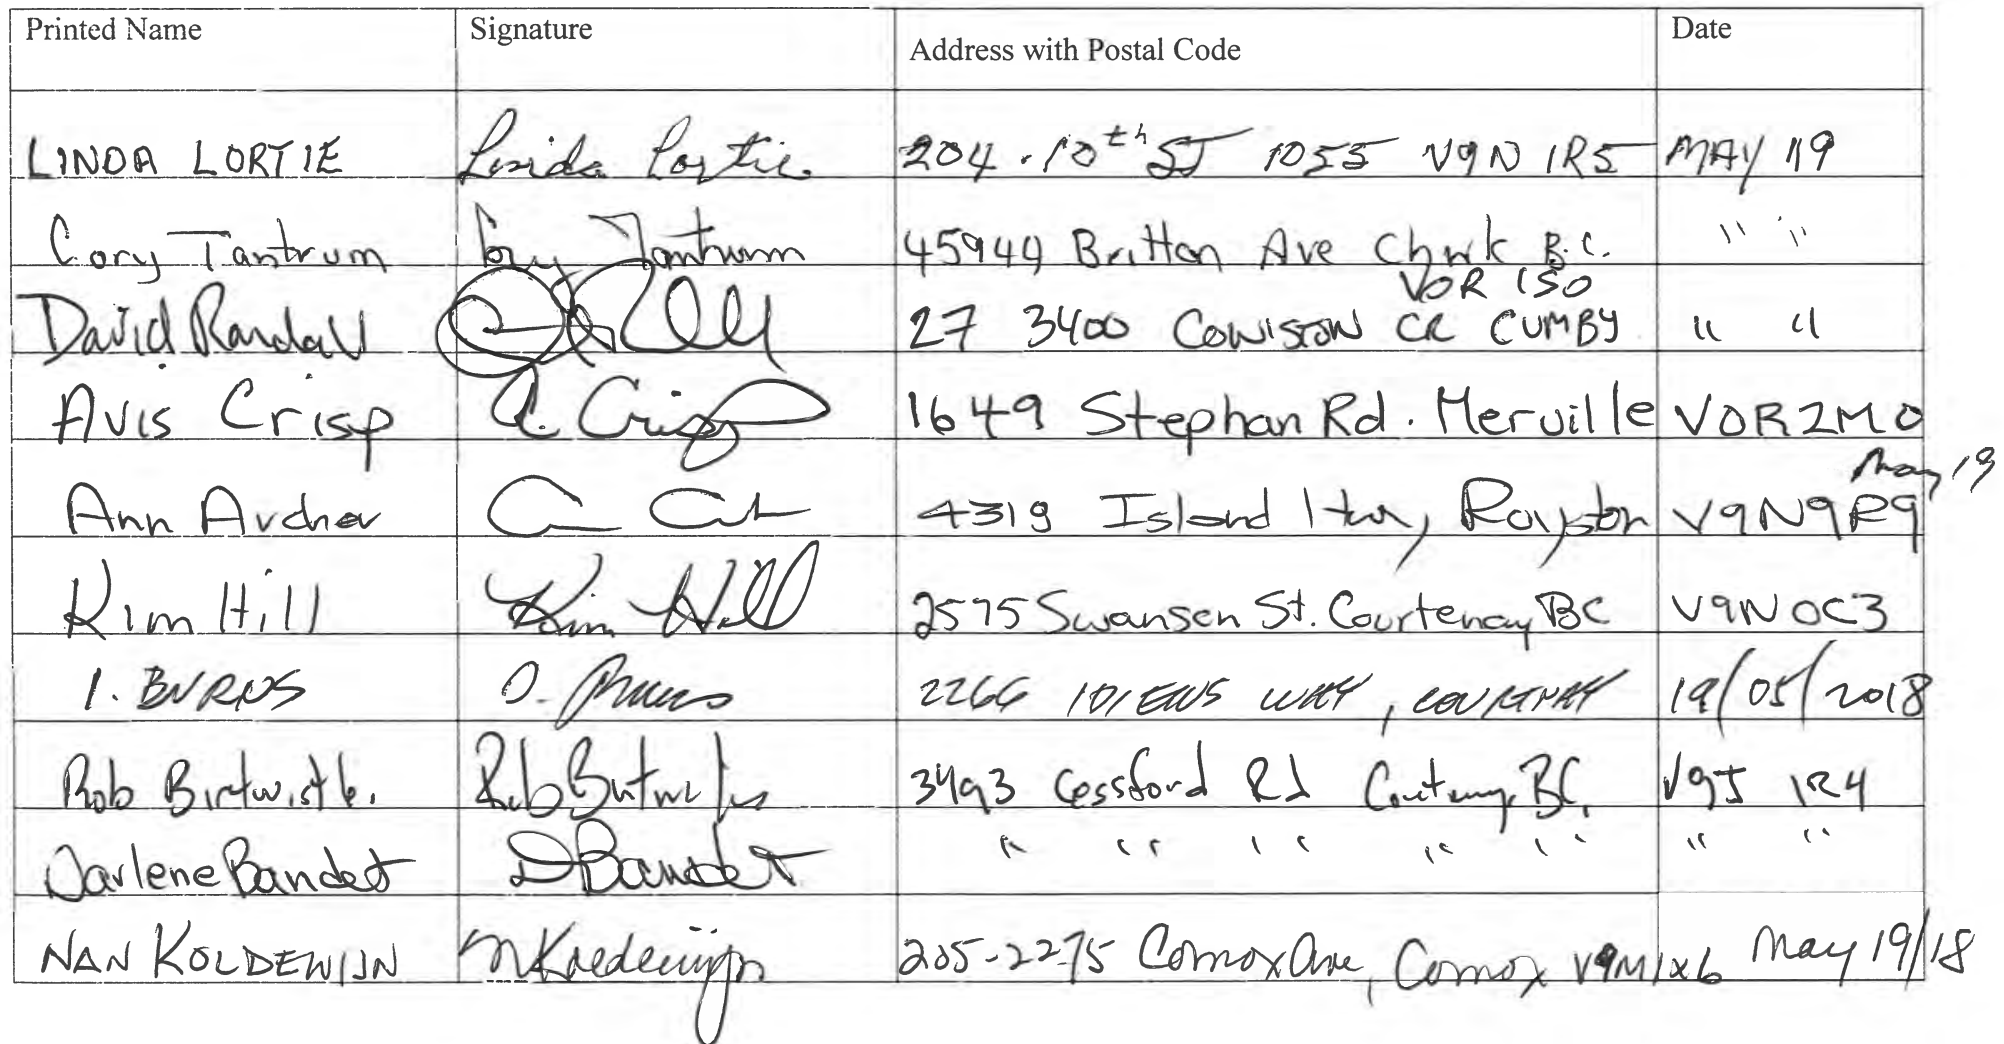 Printed Name Signature Address with Postal Code Date
LINDA LORTIE Linda Lortie 204 . 10th ST 1055 V9N 1R5 MAY 19
Cory Tantrum Cory Tantrum 45944 Britton Ave Chwk B.C. " "
VOR 1S0
David Randall 27 3400 COWISTON CR CUMBY " "
Avis Crisp A. Crisp 1649 Stephan Rd. Merville VOR 2M0
May 19
Ann 4319 Island Hwy, Royston V9N9R9
Kim Hill Kim Hill 2575 Swansen St. Courtenay BC V9N 0C3
I. BURNS I. Burns 2266 WAY, 19/05/2018
Rob Birtwistle. Rob 3493 Cessford Rd Courtenay BC, V9J 1R4
Darlene Bandet D Bandet " " " " " " "
NAN KOLDEWIJN N Koldewijn 205-2275 Comox Ave, Comox V9M1X6 May 19/18